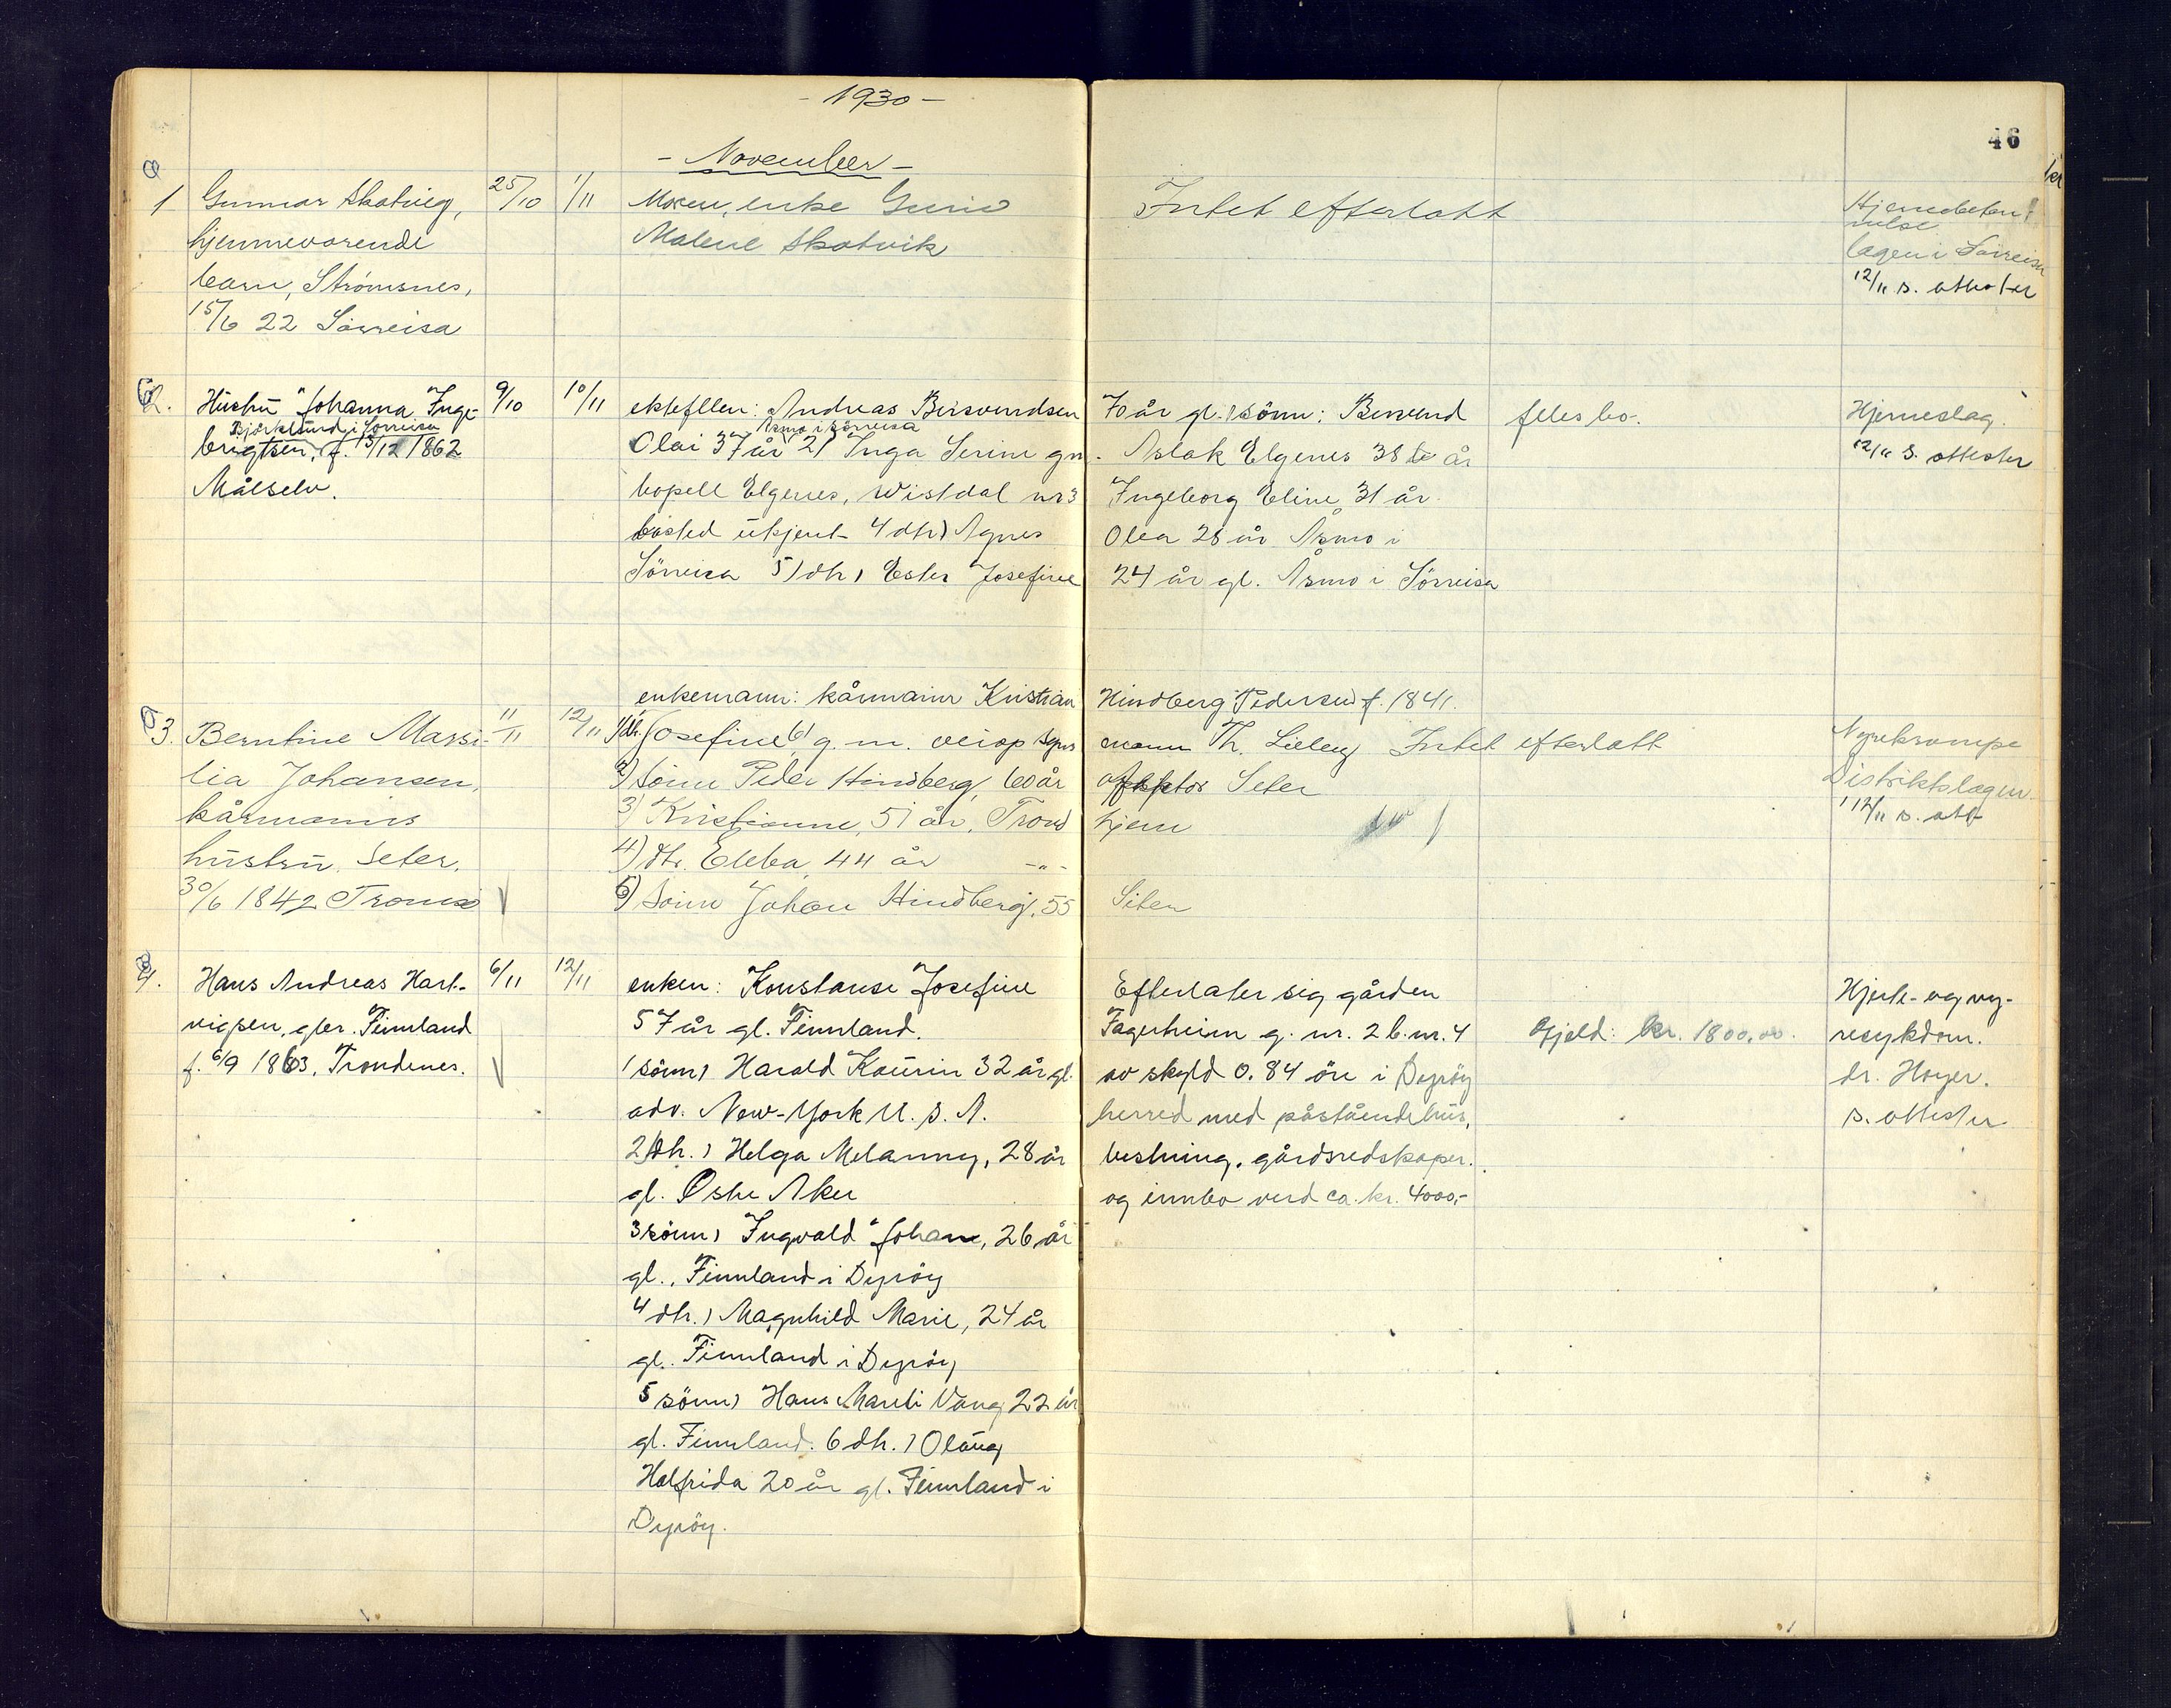 - 1930 -
46
- November -
1 Gunnar Skotvig, 25/10 1/11 Moren, enke Gurid Intet efterlatt
hjemmeværende Malene Skotvik
barn, Strømsnes, lægen i Sörreisa
15/6 22 Sörreisa 12/11 s. attester
2. Hustru Johanna Inge- 9/10 10/11 ektefellen: Andreas Bersvendsen 70 år gl. 1 sönn: Bersvend felesbo. Hjerneslag.
Björklund i Sörreisa Åsmo i Sörreisa
brigtsen, f. 13/12 1862 Olai 37 år 2) Inga Serine gm. Aslak Elgenes 38 år 12/11 s. attester
Målselv. bopell Elgenes, Wistdal nr 3 Ingeborg Eline 31 år
bosted ukjent 4 dtr) Agnes Olea 28 år Åsmo i
Sörreisa 5) dtr) Ester Josefine 24 år gl. Åsmo i Sörreisa
enkemann: kårmann Kristian Hindberg Pedersen f. 1841.
3. Berntine Massi- 11/11 12/11 1) dtr. Josefine 61 g. m. veiop syns mann Th. Lieleng Intet efterlatt Nyrekrampe
lia Johansen, 2) Sönn Peder Hindberg, 60 år Seter Distriktslægen
kårmanns 3) Kristianne, 51 år, Trond hjem 12/11 s. att
hustru, Seter, 4) dtr. Ebba, 44 år - " -
30/6 1842 Tromsö 5) Sönn Johan Hindberg, 55 Seter
4. Hans Andreas Hart- 6/11 12/11 enken: Konstanse Josefine Efterlater sig gården Hjerte- og ny-
vigsen, gbr. Finnland 57 år gl. Finnland. Fagerheim g. nr. 2 b. nr. 4 Gjeld: kr. 1800,00. resykdom.
f. 6/9 1863, Trondenes. 1 sönn) Harald Kaurin 32 år gl. av skyld 0.84 öre i Dyröy dr. Hoyer.
adr. New-York U. S. A. herred med påstående hus, s. attester
2) dtr.) Helga Melanny, 28 år besetning, gårdsredskaper
gl. Östre Aker og innbo verd ca. kr. 4000,-
3 sönn) Ingvald Johan, 26 år
gl., Finnland i Dyröy
4 dtr.) Magnhild Marie, 24 år
gl. Finnland i Dyröy
5 sönn) Hans Mareli Vang 22 år
gl. Finnland. 6 dtr.) Olaug
Halfrida 20 år gl. Finnland i
Dyröy.